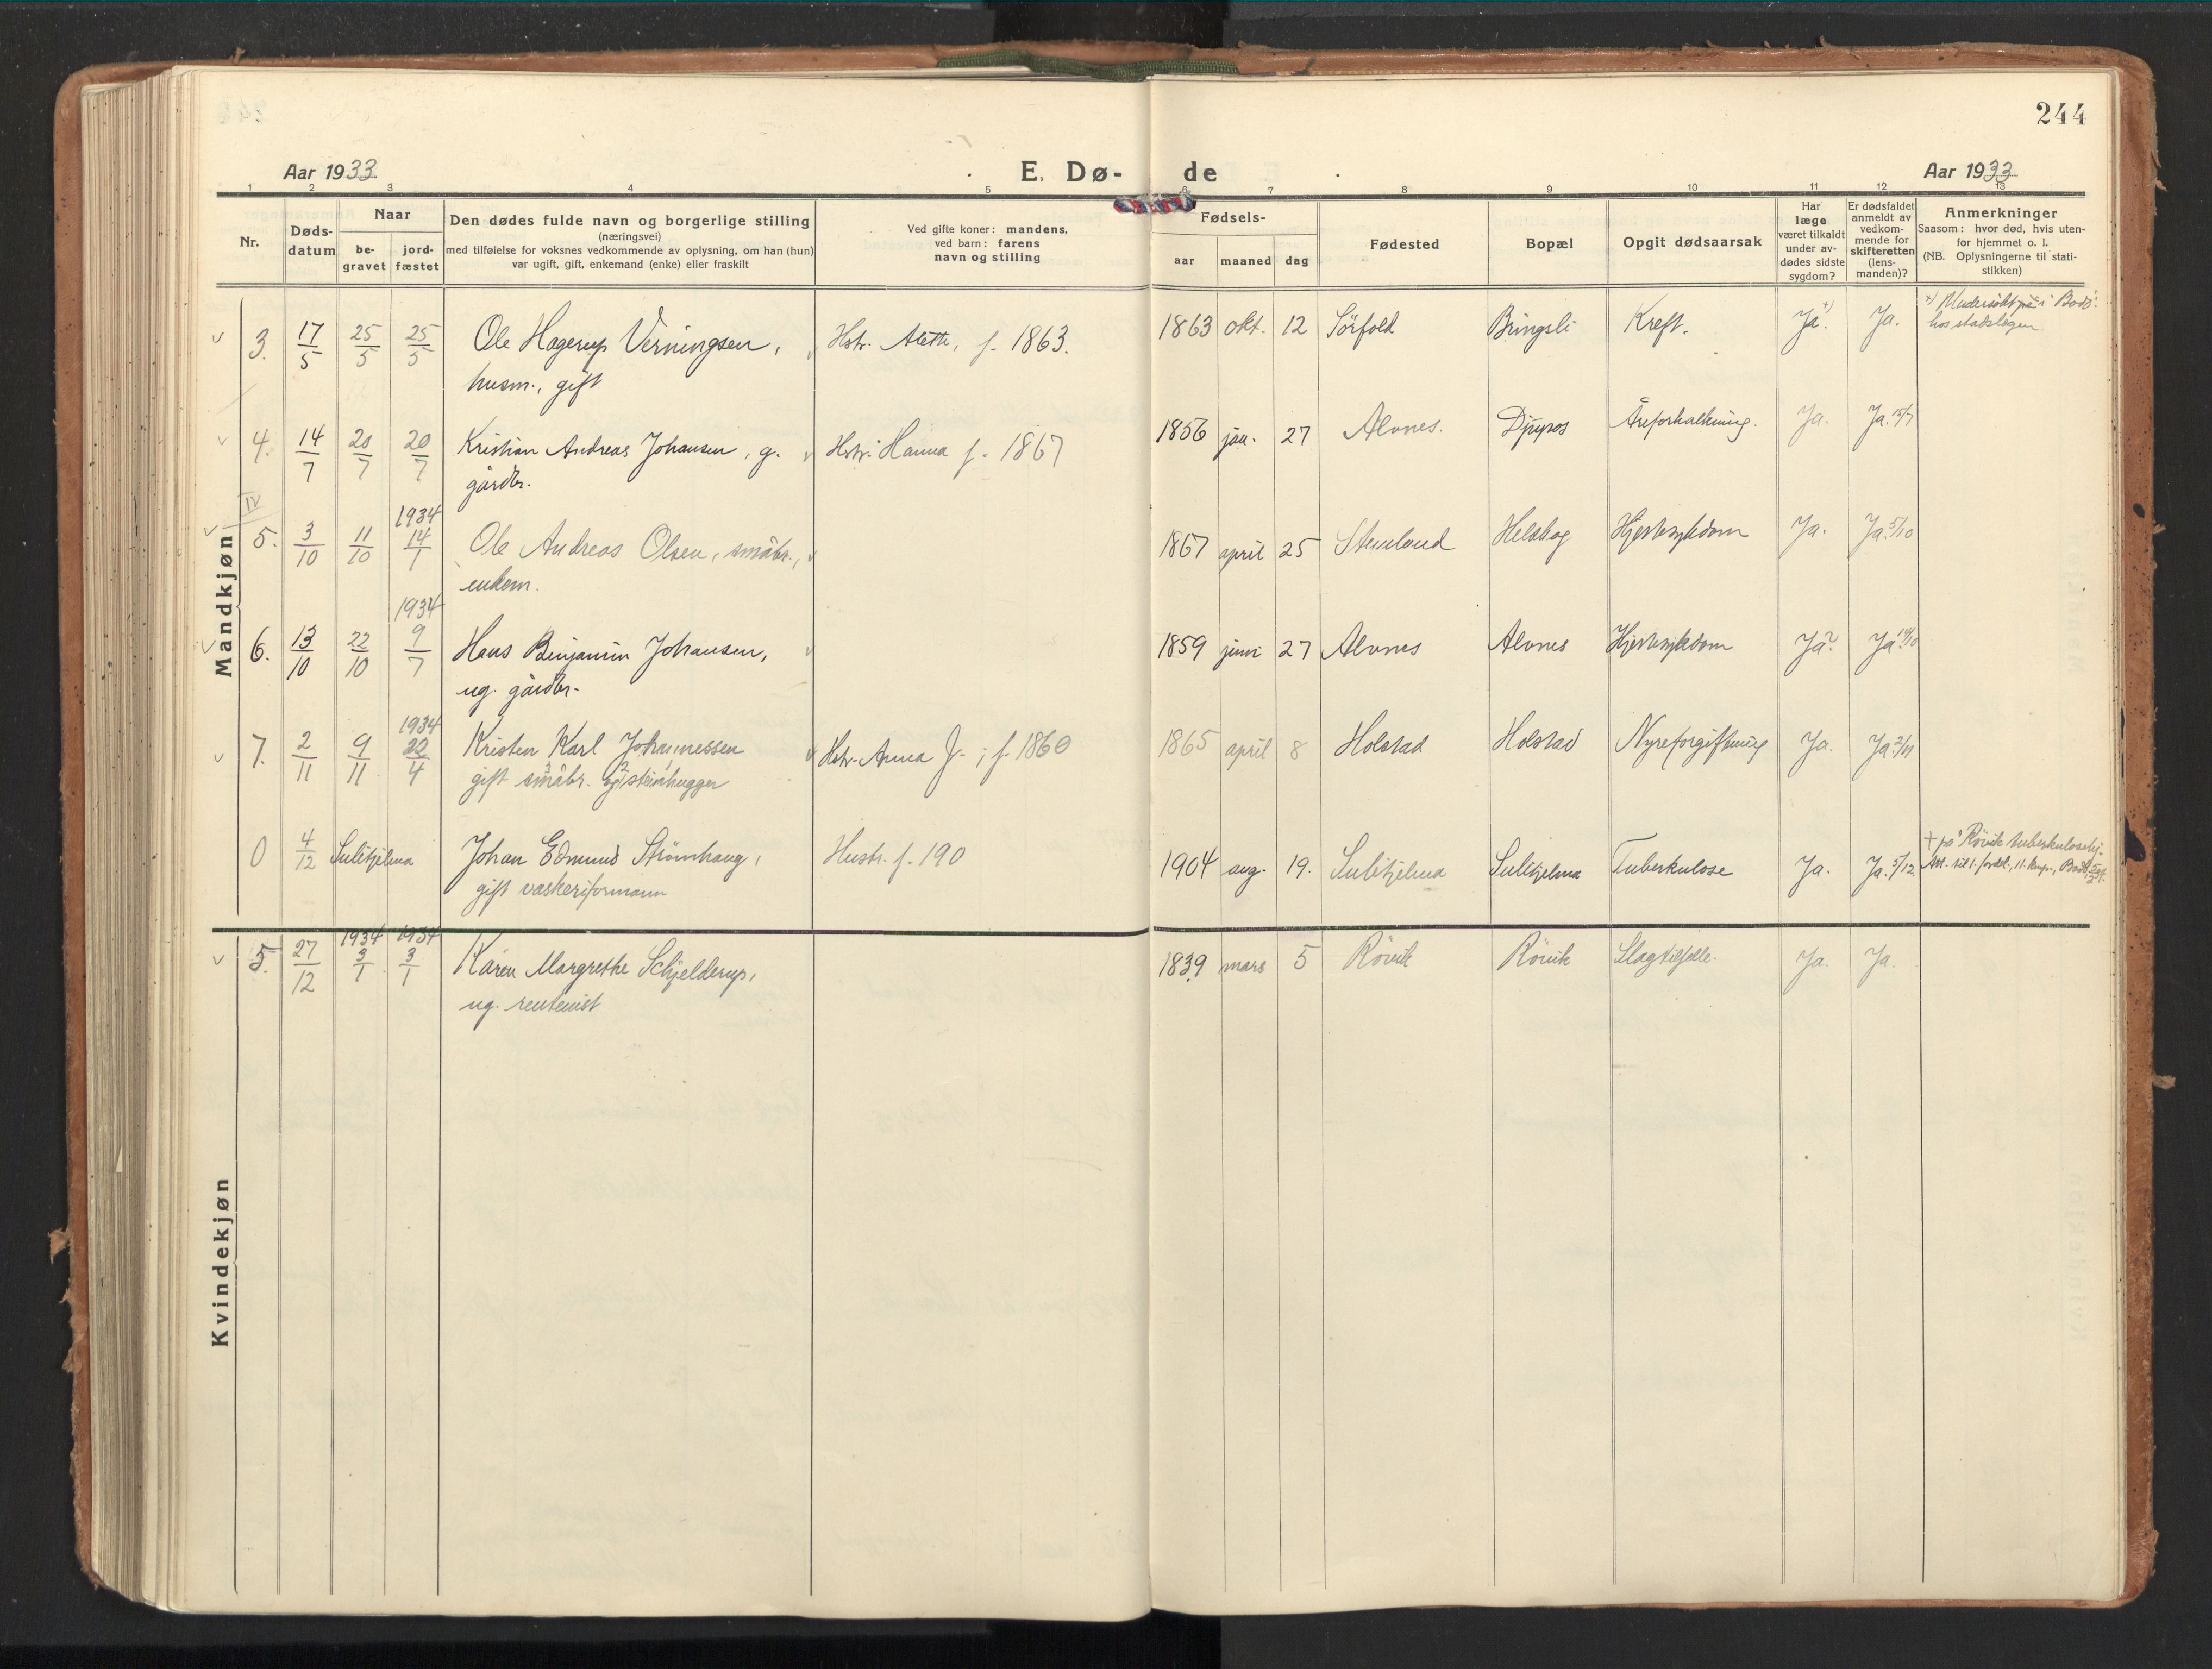 244
Aar 1933
E. Dø-
de
Aar 1933
1 2 3 4 5 6 7 8 9 10 11 12 13
Nr.
Døds-
datum
Naar
be-
gravet
jord-
fæstet
Den dødes fulde navn og borgerlige stilling
(næringsvei)
med tilføielse for voksnes vedkommende av oplysning, om han (hun)
var ugift, gift, enkemand (enke) eller fraskilt
Ved gifte koner: mandens,
ved barn: farens
navn og stilling
Fødsels-
aar maaned dag
Fødested
Bopæl
Opgit dødsaarsak
Har
læge
været tilkaldt
under av-
dødes sidste
sygdom?
Er dødsfaldet
anmeldt av
vedkom-
mende for
skifteretten
(lens-
manden)?
Anmerkninger
Saasom: hvor død, hvis uten-
for hjemmet o. l.
(NB. Oplysningerne til stati-
stikken)
Mandkjøn
3. 17/5 25/5 25/5 Ole Hagerup Verningsen, Hstr. Alette, f. 1863. 1863 okt. 12 Sörfold Bringsli Kreft. Ja +). Ja. +) Undersökt i Bodö
husm., gift hos stadslegen.
4. 14/7 20/7 20/7 Kristian Andreas Johansen, g. Hstr. Hanna f. 1867 1856 jan. 27 Alvnes. Djupos Åreforkalkning. Ja. Ja. 15/7
gårdbr.
IV
1934
5. 3/10 11/10 14/1 Ole Andreas Olsen, småbr., 1867 april 25 Stemland Helskog Hjertesykdom Ja. Ja. 5/10
enkem.
1934
6. 13/10 22/10 9/7 Hans Benjamin Johansen, 1859 juni 27 Alvnes Alvnes Hjertesykdom Ja? Ja. 14/10
ug. gårdbr.
1934
7. 2/11 9/11 22/4 Kristen Karl Johannessen Hstr. Anna J. ; f. 1860 1865 april 8 Holstad Holstad Nyreforgiftning Ja. Ja. 2/11
gift småbr. og steinhugger
0 4/12 Sulitjelma Johan Edmund Strömhaug, Hustr. f. 190 1904 aug. 19. Sulitjelma Sulitjelma Tuberkulose Ja. Ja. 5/12 + på Rövik tuberkulosehj.
gift vaskeriformann
Kvindekjøn
1934 1934
5. 27/12 3/1 3/1 Karen Margrethe Schjelderup, 1839 mars 5 Rövik Rövik Slagtilfelle. Ja. Ja.
ug. rentenist